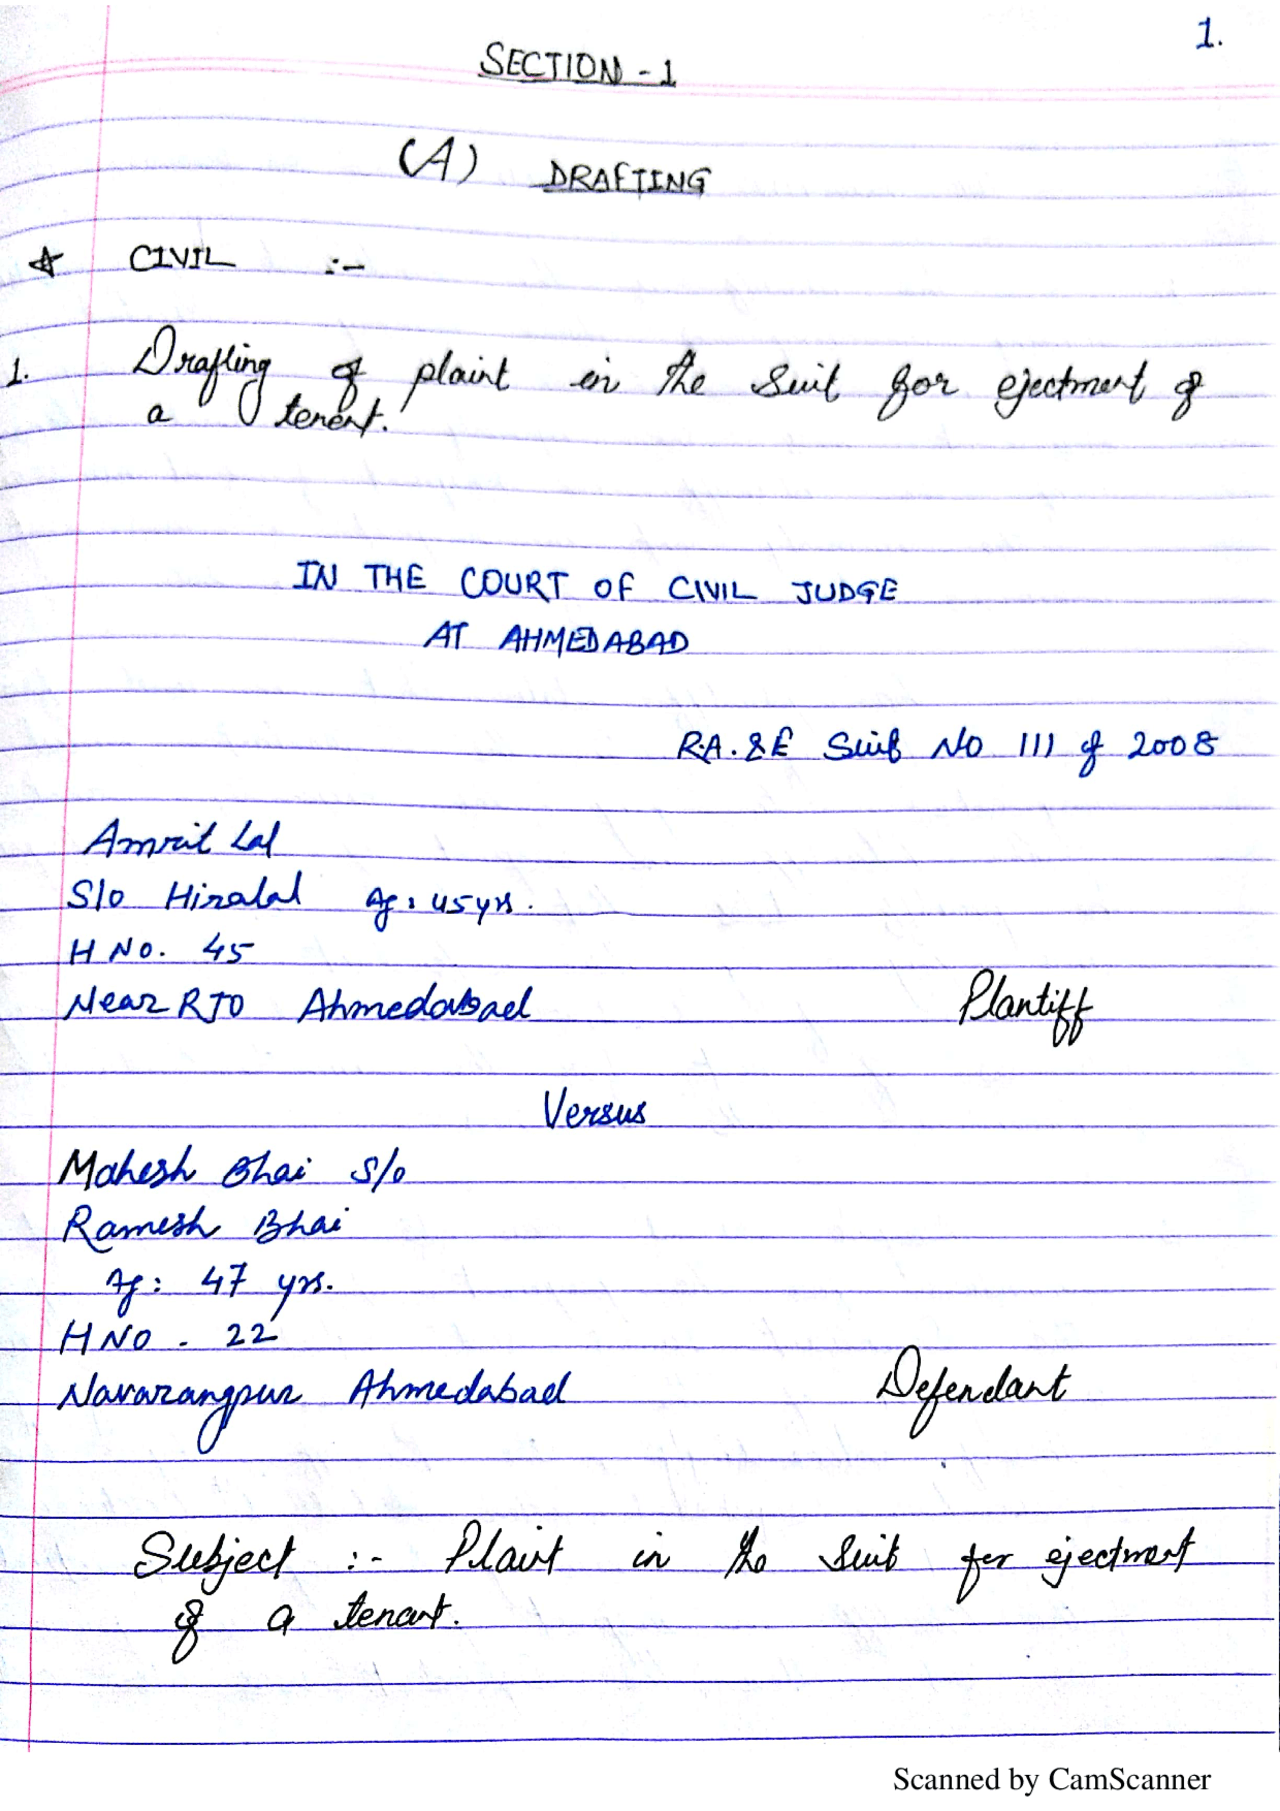 1.
SECTION - 1
(A) DRAFTING
☆ CIVIL :-
1. Drafting of plaint in the Suit for ejectment of
a tenent.
IN THE COURT OF CIVIL JUDGE
AT AHMEDABAD
R.A. & E Suit No 111 of 2008
Amrit Lal
S/o Hiralal Ag: 45 yrs.
H No. 45
Near RTO Ahmedabad Plantiff
Versus
Mahesh Bhai S/o
Ramesh Bhai
Ag: 47 yrs.
H NO. 22
Navarangpur Ahmedabad Defendant
Subject :- Plaint in the Suit for ejectment
of a tenant.
Scanned by CamScanner